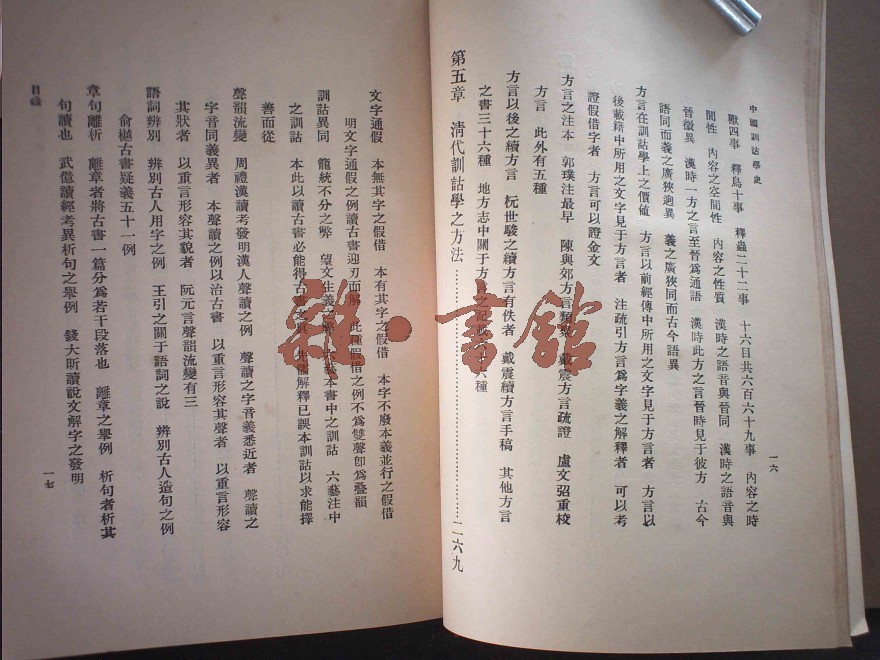 中國訓詁學史
一六
獸四事　釋鳥十事　釋蟲二十二事　十六目共六百六十九事　內容之時
間性　內容之空間性　內容之性質　漢時之語音與晉同　漢時之語音與
晉徵異　漢時一方之言至晉爲通語　漢時此方之言晉時見于彼方　古今
語同而義之廣狹迥異　義之廣狹同而古今語異
方言在訓詁學上之價値　方言以前經傳中所用之文字見于方言者　方言以
後載籍中所用之文字見于方言者　注疏引方言爲字義之解釋者　可以考
證假借字者　方言可以證金文
方言之注本　郭璞注最早　陳與郊方言類聚　戴震方言疏證　盧文弨重校
方言　此外有五種
方言以後之續方言　杭世駿之續方言有佚者　戴震續方言手稿　其他方言
之書三十六種　地方志中關于方言之記載六種
第五章　清代訓詁學之方法……二六九
文字通假　本無其字之假借　本有其字之假借　本字不廢本義並行之假借
明文字通假之例讀古書迎刃而解　此種假借之例不爲雙聲卽爲疊韻
訓詁異同　籠統不分之弊　望文生義之弊　六藝本書中之訓詁　六藝注中
之訓詁　本此以讀古書必能得古書之眞　先儒解釋已誤本訓詁以求能擇
善而從
聲韻流變　周禮漢讀考發明漢人聲讀之例　聲讀之字音義悉近者　聲讀之
字音同義異者　本聲讀之例以治古書　以重言形容其聲者　以重言形容
其狀者　以重言形容其貌者　阮元言聲韻流變有三
語詞辨別　辨別古人用字之例　王引之關于語詞之說　辨別古人造句之例
俞樾古書疑義五十一例
章句離析　離章者將古書一篇分爲若干段落也　離章之舉例　析句者析其
句讀也　武億讀經考異析句之舉例　錢大昕讀說文解字之發明
目錄
一七
雜·書館